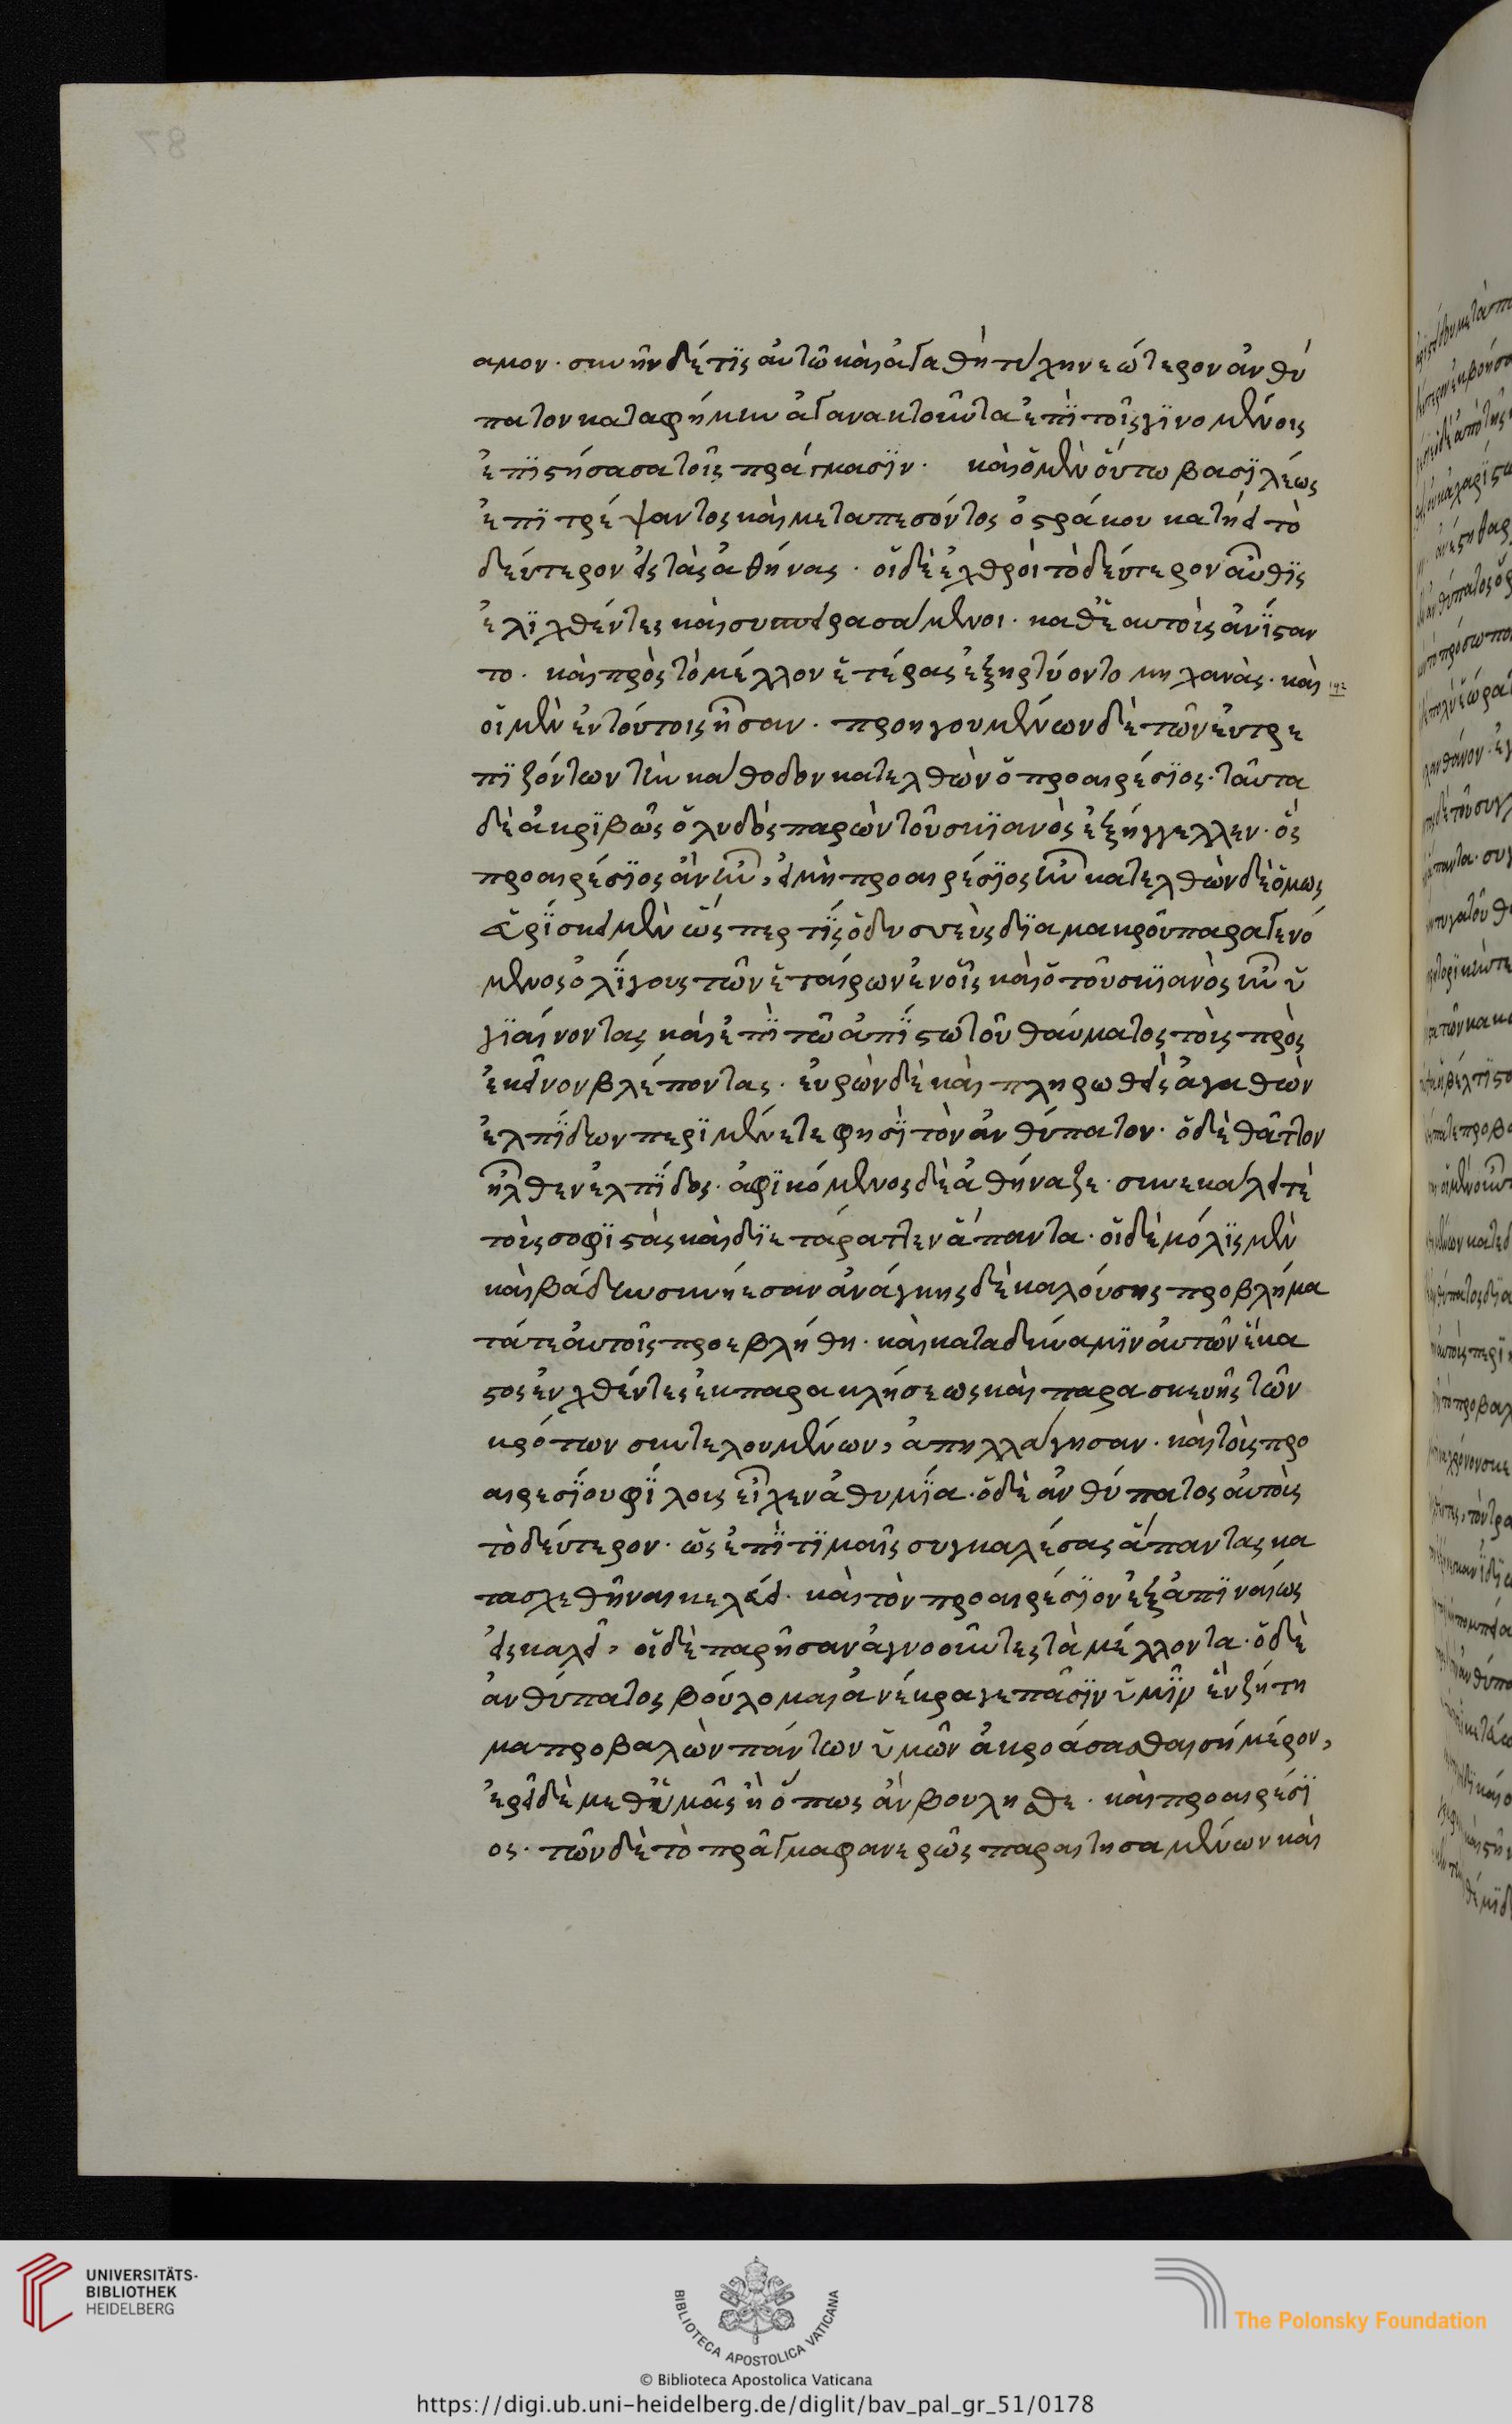 αμον· συνῆν δέ τϊς αὐτῶ καὶ ἀγαθὴ τύχη νεώτερον ἀνθύ
πατον καταφήμειν ἀγανακτοῦντα ἐπῒ τοῖς γϊνομένοις
ἐπϊστήσασα τοῖς πράγμασϊν· καὶ ὁ μὲν οὕτω βασϊλέως
ἐπϊτρέψαντος καὶ μεταπεσόντος ὀστράκου κατήει τὸ
δεύτερον εἰς τὰς ἀθήνας· οἱ δὲ ἐχθροὶ τὸ δεύτερον αὖθϊς
ἑλϊχθέντες καὶ συσπειρασάμενοι· καθ' ἑαυτοὺς ἀνΐσταν
το· καὶ πρὸς τὸ μέλλον ἑτέρας ἐξηρτύοντο μηχανάς· καὶ
οἱ μὲν ἐν τούτοις ἦσαν· προηγουμένων δὲ τῶν εὐτρε
πϊζόντων τὴν κάθοδον κατελθὼν ὁ προαιρέσϊος· ταῦτα
δὲ ἀκρϊβῶς ὁ λυδὸς παρὼν τουσκϊανὸς ἐξήγγελλεν· ὃς
προαιρέσϊος ἂν ἦν, εἰ μὴ προαιρέσϊος ἦν κατελθὼν δὲ ὅμως
εὑρΐσκει μὲν ὥσπερ τῒς ὀδυσσεὺς δϊα μακροῦ παραγενό
μενος ὀλΐγους τῶν ἑταίρων ἐν οἷς καὶ ὁ τουσκϊανὸς ἦν ὑ
γϊαίνοντας καὶ ἐπῒ τῶ ἀπΐστω τοῦ θαύματος τοὺς πρὸς
ἐκεῖνον βλέποντας· εὑρὼν δὲ καὶ πληρωθεὶς ἀγαθῶν
ἐλπΐδων περϊμένετε φησῒ τὸν ἀνθύπατον· ὁ δὲ θᾶττον
ἦλθεν ἐλπΐδος· ἀφϊκόμενος δὲ ἀθήναζε· συνεκάλει τὲ
τοὺς σοφϊστὰς καὶ δϊετάραττεν ἅπαντα· οἱ δὲ μόλϊς μὲν
καὶ βάδην συνήεσαν ἀνάγκης δὲ καλούσης προβλήμα
τά τε αὐτοῖς προεβλήθη· καὶ κατα δύναμϊν αὐτῶν ἕκα
στος ἐνχθέντες ἐκ παρακλήσεως καὶ παρασκευῆς τῶν
κρότων συντελουμένων, ἀπηλλάγησαν· καὶ τοὺς προ
αιρεσΐου φΐλους εἶχεν ἀθυμΐα· ὁ δὲ ἀνθύπατος αὐτοὺς
τὸ δεύτερον· ὡς ἐπῒ τϊμαῖς συγκαλέσας ἅπαντας κα
τασχεθῆναι κελεύει· καὶ τὸν προαιρέσϊον ἐξαπϊναίως
εἰσκαλεῖ, οἱ δὲ παρῆσαν ἀγνοοῦντες τὰ μέλλοντα· ὁ δὲ
ἀνθύπατος βούλομαι ἀνέκραγε πᾶσϊν ὑμῖν ἓν ζήτη
μα προβαλὼν πάντων ὑμῶν ἀκροάσασθαι σήμέρον,
ἐρεῖ δὲ μεθ' ὑμᾶς ἢ ὅπως ἂν βουλησθε· καὶ προαιρέσϊ
ος· τῶν δὲ τὸ πρᾶγμα φανερῶς παραιτησαμένων καὶ
87
UNIVERSITÄTS-
BIBLIOTHEK
HEIDELBERG
BIBLIOTECA APOSTOLICA VATICANA
The Polonsky Foundation
© Biblioteca Apostolica Vaticana
https://digi.ub.uni-heidelberg.de/diglit/bav_pal_gr_51/0178